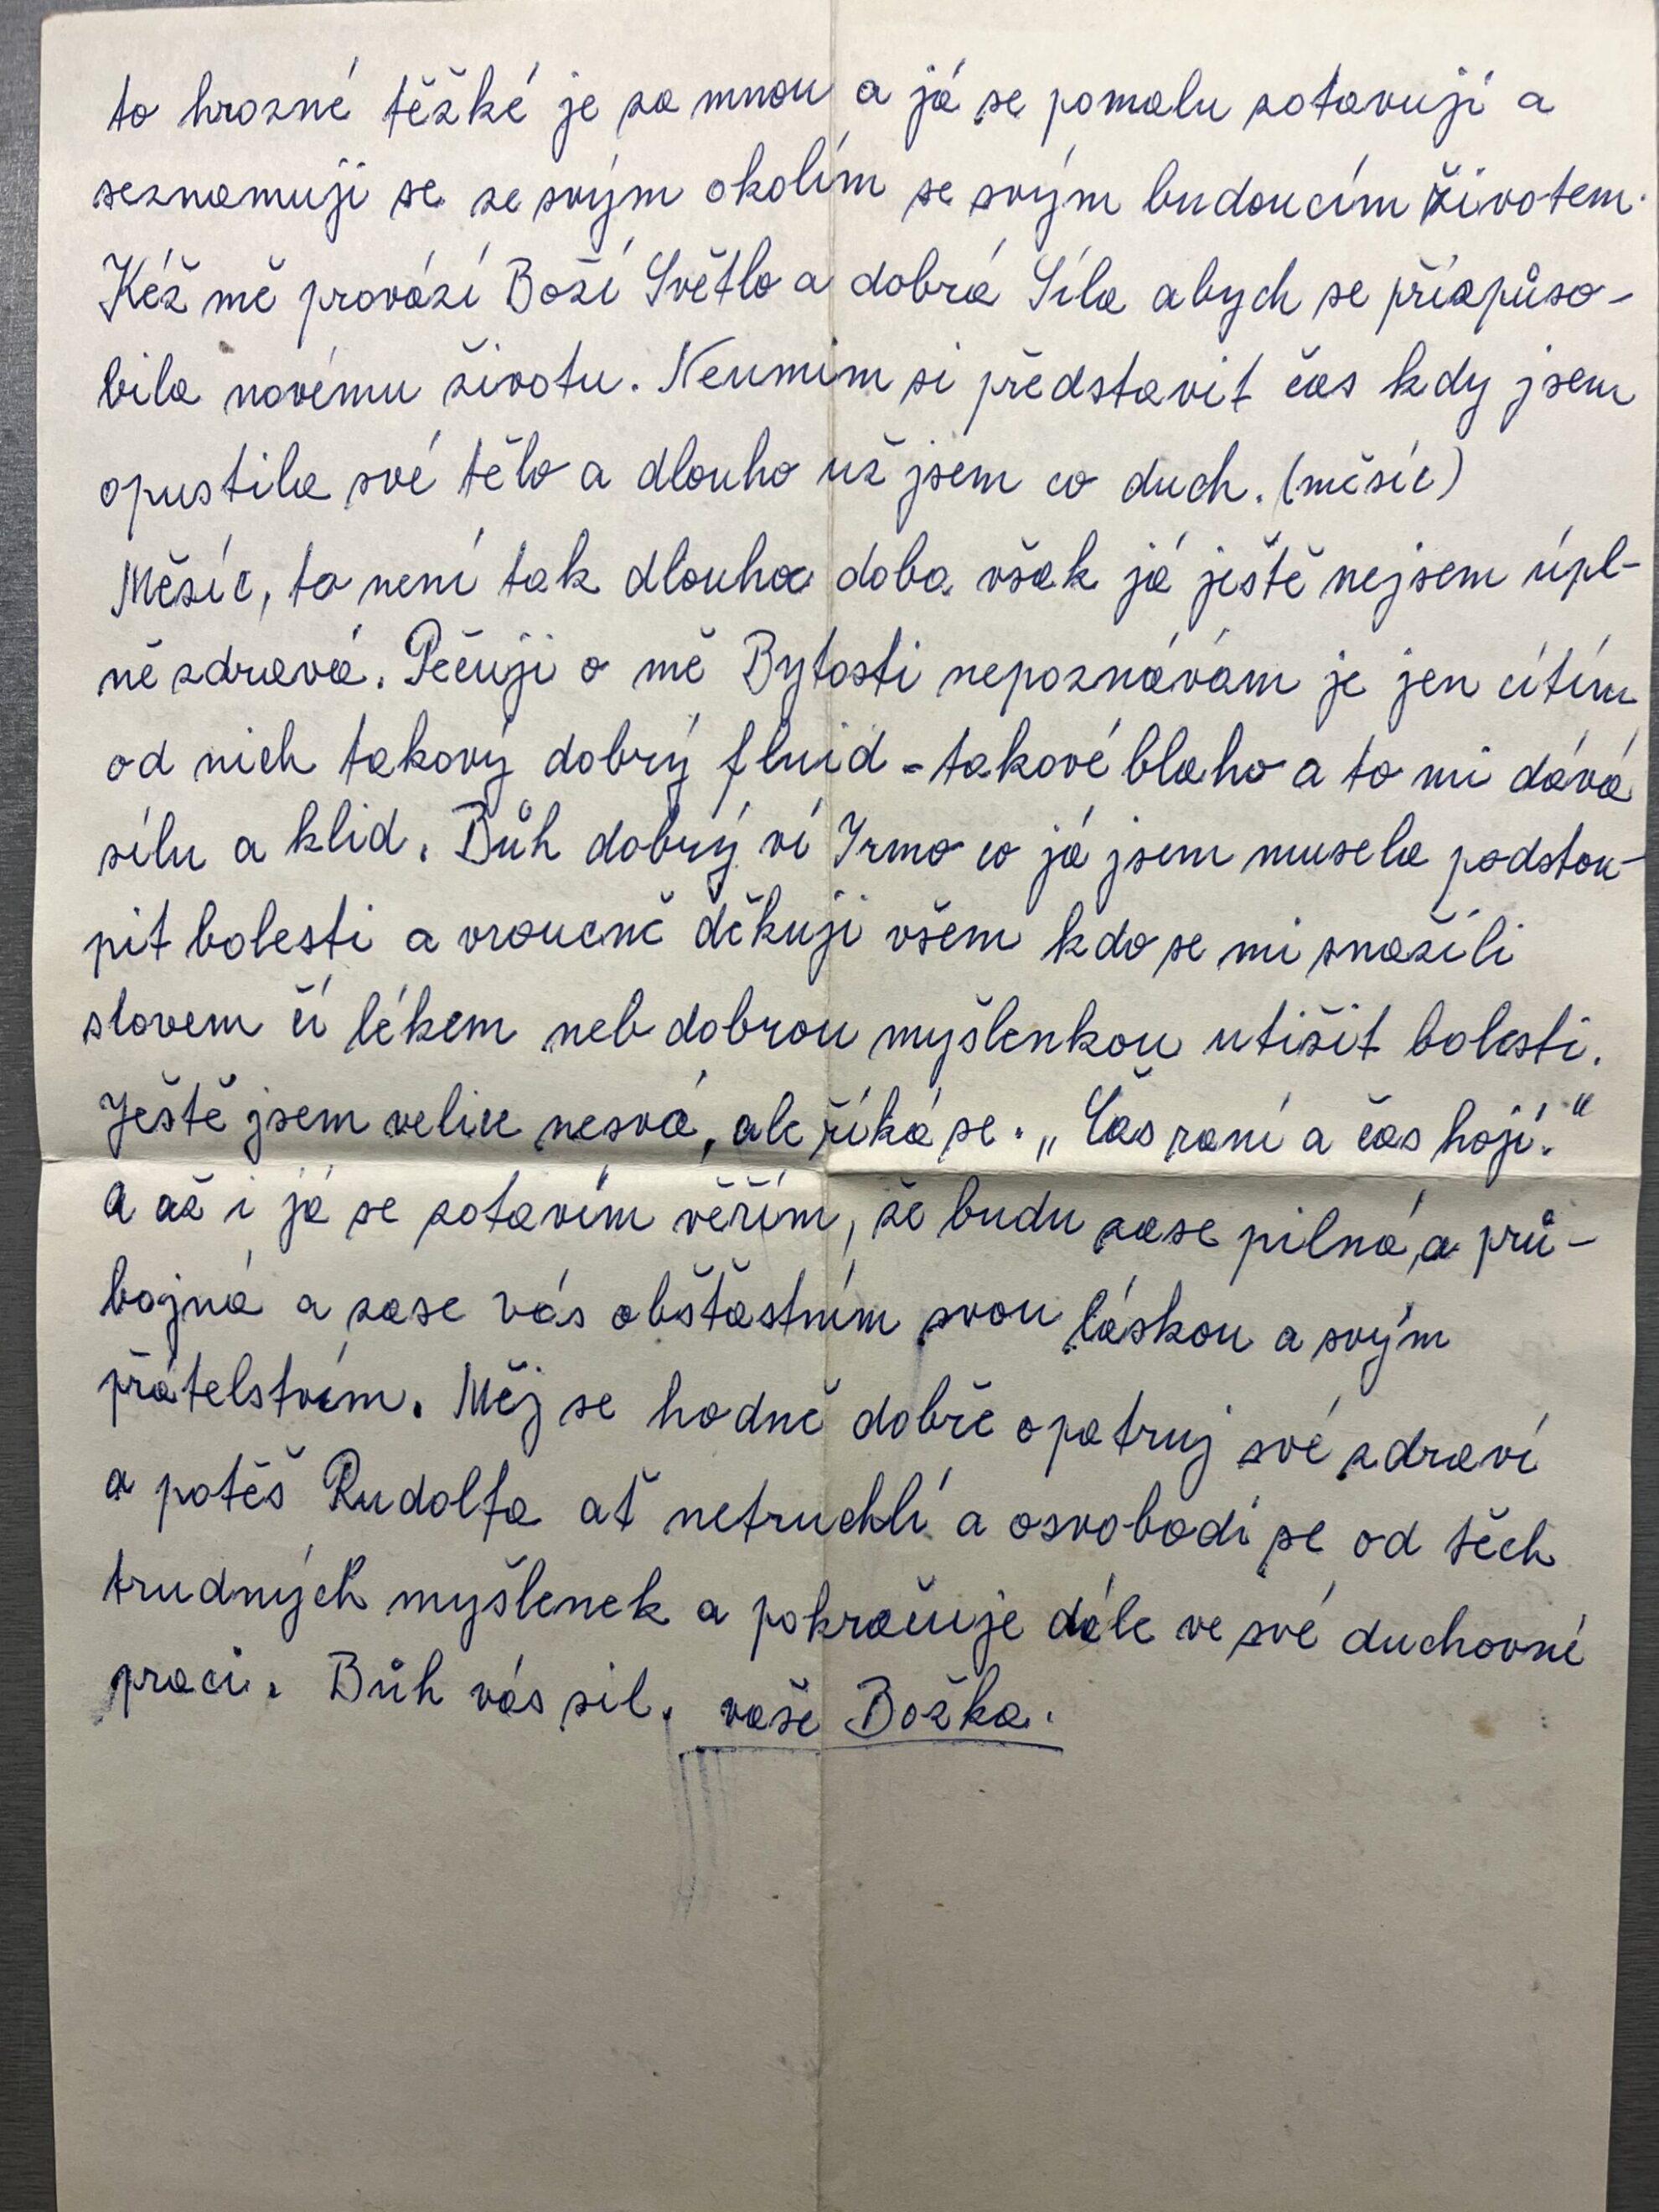 to hrozné těžké je za mnou a já se pomalu zotavují a
seznamuji se ze svým okolím se svým budoucím životem.
Kéž mě provází Boží Světlo a dobrá Síla abych se přizpůso-
bila novému životu. Neumím si představit čas kdy jsem
opustila své tělo a dlouho už jsem co duch. (měsíc)
Měsíc, to není tak dlouha doba však já ještě nejsem úpl-
ně zdravá. Pečuji o mě Bytosti nepoznávám je jen cítím
od nich takový dobrý fluid - takové blaho a to mi dává
sílu a klid. Bůh dobrý ví Irmo co já jsem musela podstou-
pit bolesti a vroucně děkuji všem kdo se mi snažíli
slovem čí lékem neb dobrou myšlenkou utišit bolesti.
Ještě jsem velice nesvá, ale říká se. „Čas raní a čas hojí.“
A až i já se zotavím věřím, že budu zase pilná, a prů-
bojná a zase vás obšťastním svou láskou a svým
přátelstvím. Měj se hodně dobře opatruj své zdraví
a potěš Rudolfa ať netruchlí a osvobodí se od těch
trudných myšlenek a pokračuje dále ve své duchovní
praci. Bůh vás sil. vaše Božka.